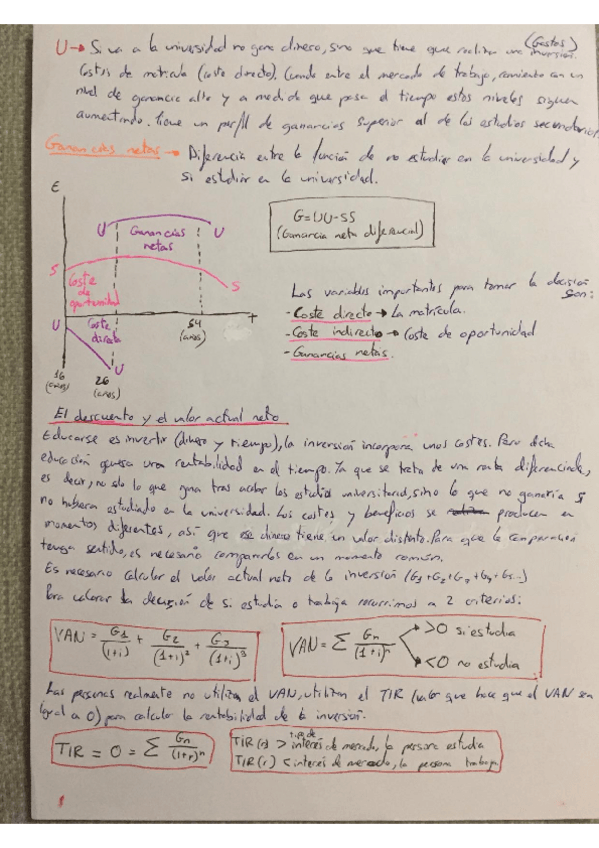 (Gastos)
U → Si va a la universidad no gana dinero, sino que tiene que realizar una inversión.
Costes de matrícula (coste directo). Cuando entre el mercado de trabajo, comienza con un
nivel de ganancia alto y a medida que pasa el tiempo estos niveles siguen
aumentando. Tiene un perfil de ganancias superior al de los estudios secundarios.
Ganancias netas → Diferencia entre la función de no estudiar en la universidad y
si estudiar en la universidad.
€
U Ganancias netas U
G=UU-SS
(Ganancia neta diferencial)
S Coste de oportunidad S
Las variables importantes para tomar la decisión
son:
- Coste directo → La matrícula.
- Coste indirecto → Coste de oportunidad
- Ganancias netas.
U Coste directo U
54 (años)
t
16 (años)
26 (años)
El descuento y el valor actual neto
Educarse es invertir (dinero y tiempo), la inversión incorpora unos costes. Pero dicha
educación genera una rentabilidad en el tiempo. Ya que se trata de una renta diferencial,
es decir, no solo lo que gana tras acabar los estudios universitarios, sino lo que no ganaría si
no hubiera estudiado en la universidad. Los costes y beneficios se producen en
momentos diferentes, así que ese dinero tiene un valor distinto. Para que la comparación
tenga sentido, es necesario compararlos en un momento común.
Es necesario calcular el valor actual neto de la inversión (G1+G2+G3+G4+G5...)
Para valorar la decisión de si estudia o trabaja recurrimos a 2 criterios:
VAN = G1/(1+i) + G2/(1+i)² + G3/(1+i)³
VAN = Σ Gn/(1+i)ⁿ
>0 si estudia
<0 no estudia
Las personas realmente no utilizan el VAN, utilizan el TIR (valor que hace que el VAN sea
igual a 0) para calcular la rentabilidad de la inversión.
TIR = 0 = Σ Gn/(1+r)ⁿ
TIR(r) > tipo de interés de mercado, la persona estudia
TIR(r) < interés de mercado, la persona trabaja